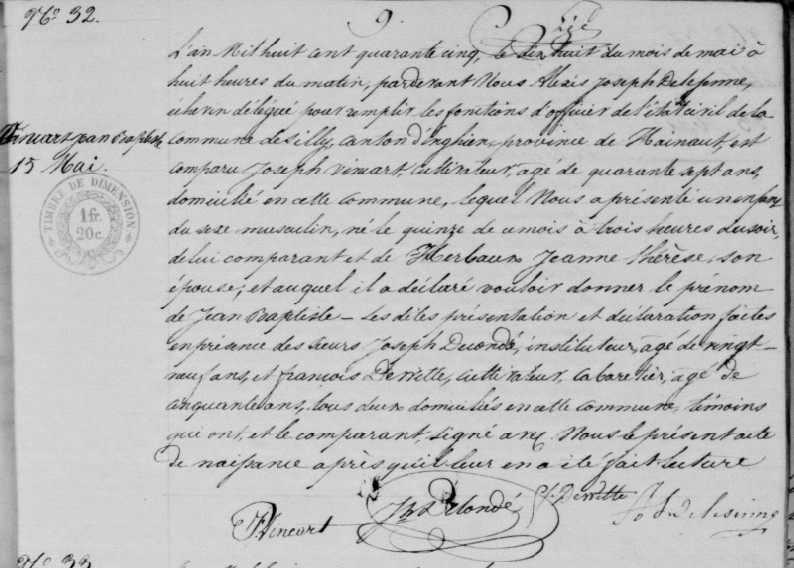 N.º 32.
L'an Mil huit cent quarante cinq, le dix huit du mois de mai à
huit heures du matin, pardevant Nous Alexis Joseph Delepinne,
échevin délégué pour remplir les fonctions d'officier de l'état civil de la
commune de Silly, canton d'Enghien, province de Hainaut, est
comparu Joseph Vincart, cultivateur, agé de quarante sept ans,
domicilié en cette commune, lequel Nous a présenté un enfant
du sexe masculin, né le quinze de ce mois à trois heures du soir,
de lui comparant et de Herbaux Jeanne Thérèse, son
épouse; et auquel il a déclaré vouloir donner le prénom
de Jean Baptiste – Les dites présentation et déclaration faites
en présence des sieurs Joseph Ducondé, instituteur, agé de vingt-
neuf ans, et françois Dewitte, cultivateur, cabaretier, agé de
cinquante ans, tous deux domiciliés en cette commune, témoins
qui ont, et le comparant, signé avec Nous le présent acte
de naissance après qu'il leur en a été fait lecture
Vincart Jean Baptiste
15 Mai.
TIMBRE DE DIMENSION
1 fr.
20 c.
J Vincart
Dewitte
N.º 33